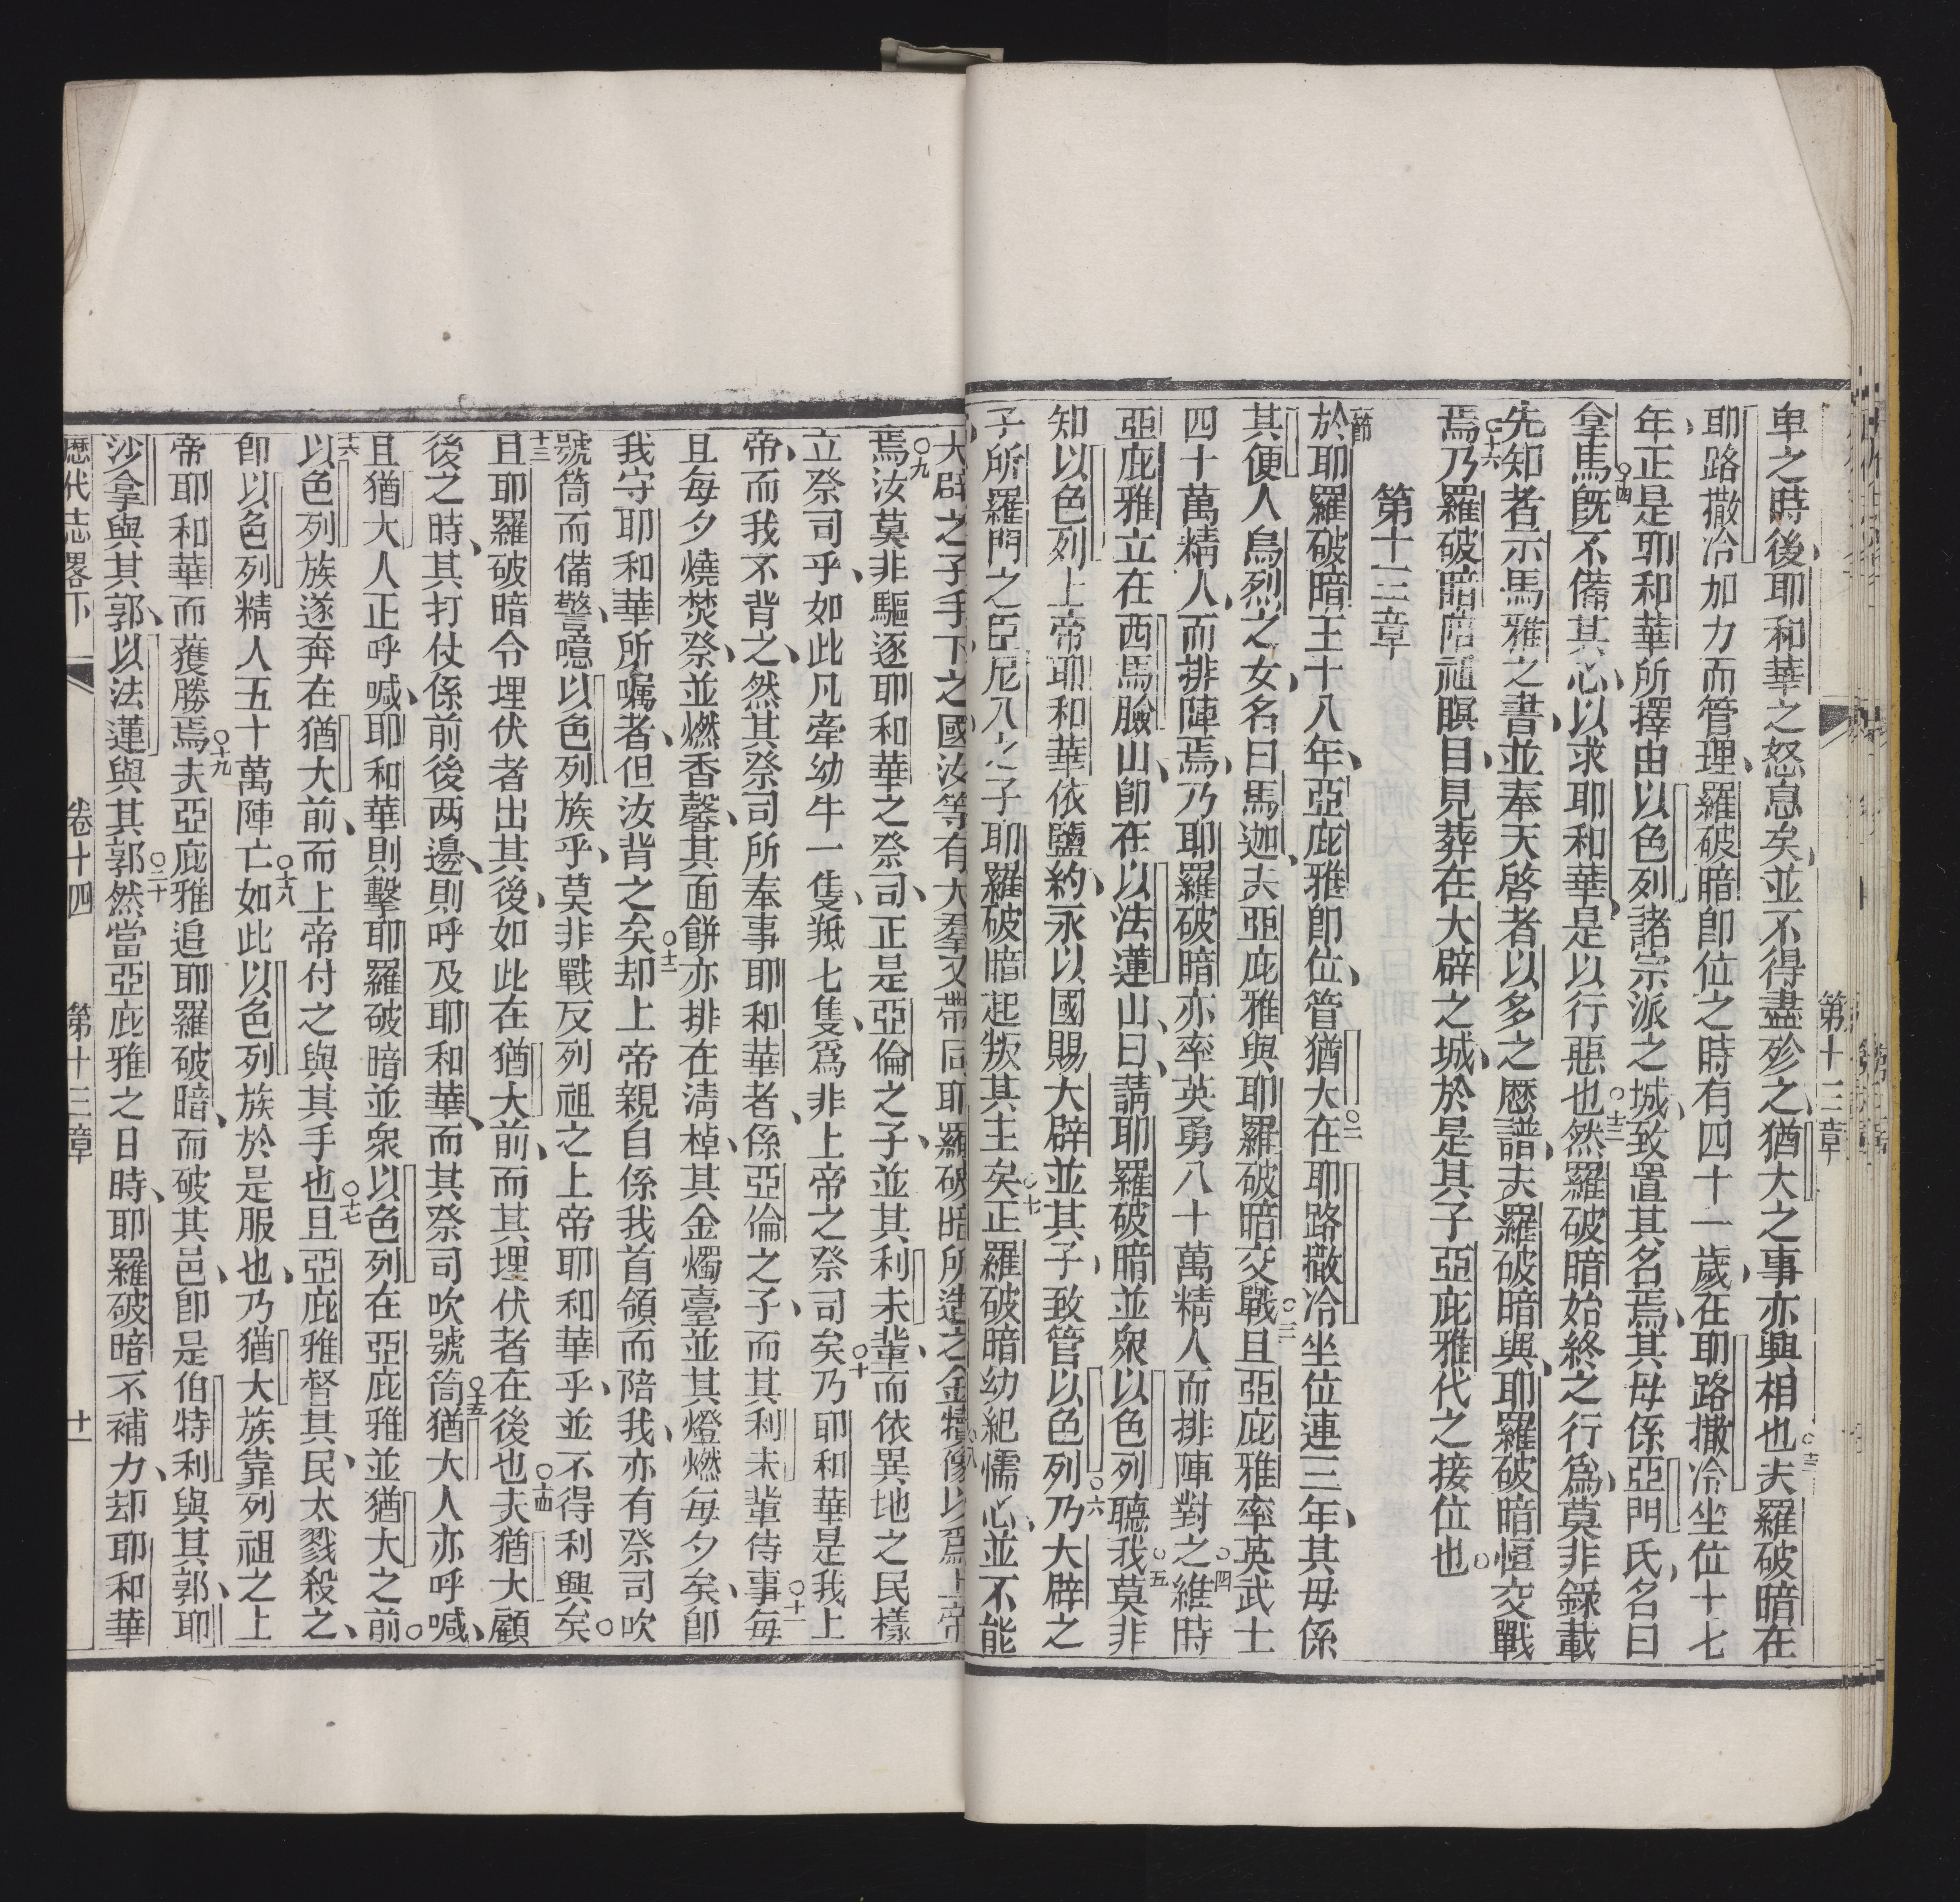 第十三章
卑之時後耶和華之怒息矣並不得盡殄之猶大之事亦興相也○十三夫羅破暗在
耶路撒冷加力而管理羅破暗即位之時有四十一歲在耶路撒冷坐位十七
年正是耶和華所擇由以色列諸宗派之城致置其名焉其母係亞門氏名曰
拿馬○十四旣不備其心以求耶和華是以行惡也○十五然羅破暗始終之行爲莫非錄載
先知者示馬雅之書並奉天啓者以多之歷譜夫羅破暗與耶羅破暗恒交戰
焉○十六乃羅破暗陪祖瞑目見葬在大辟之城於是其子亞庇雅代之接位也○
第十三章
節於耶羅破暗王十八年亞庇雅即位管猶大○二在耶路撒冷坐位連三年其母係
其便人烏烈之女名曰馬迦夫亞庇雅與耶羅破暗交戰○三且亞庇雅率英武士
四十萬精人而排陣焉乃耶羅破暗亦率英勇八十萬精人而排陣對之○四維時
亞庇雅立在西馬臉山即在以法蓮山曰請耶羅破暗並衆以色列聽我○五莫非
知以色列上帝耶和華依鹽約永以國賜大辟並其子致管以色列○六乃大辟之
子所羅門之臣尼八之子耶羅破暗起叛其主矣○七正羅破暗幼紀懦心並不能
大辟之子手下之國汝等有大羣又帶同耶羅破暗所造之金犢像以爲上帝
焉○九汝莫非驅逐耶和華之祭司正是亞倫之子並其利未輩而依異地之民樣
立祭司乎如此凡牽幼牛一隻羝七隻爲非上帝之祭司矣○十乃耶和華是我上
帝而我不背之然其祭司所奉事耶和華者係亞倫之子而其利未輩侍事○十一每
且每夕燒焚祭並燃香馨其面餅亦排在淸棹其金燭臺並其燈燃每夕矣卽
我守耶和華所囑者但汝背之矣○十二却上帝親自係我首領而陪我亦有祭司吹
號筒而備警噫以色列族乎莫非戰反列祖之上帝耶和華乎並不得利興矣○
十三且耶羅破暗令埋伏者出其後如此在猶大前而其埋伏者在後也○十四夫猶大顧
後之時其打仗係前後两邊則呼及耶和華而其祭司吹號筒○十五猶大人亦呼喊
且猶大人正呼喊耶和華則擊耶羅破暗並衆以色列在亞庇雅並猶大之前○
十六以色列族遂奔在猶大前而上帝付之與其手也○十七且亞庇雅督其民太戮殺之
卽以色列精人五十萬陣亡○十八如此以色列族於是服也乃猶大族靠列祖之上
帝耶和華而獲勝焉○十九夫亞庇雅追耶羅破暗而破其邑卽是伯特利與其郭耶
沙拿與其郭以法蓮與其郭○二十然當亞庇雅之日時耶羅破暗不補力却耶和華
歷代志畧下 卷十四 第十三章 十一